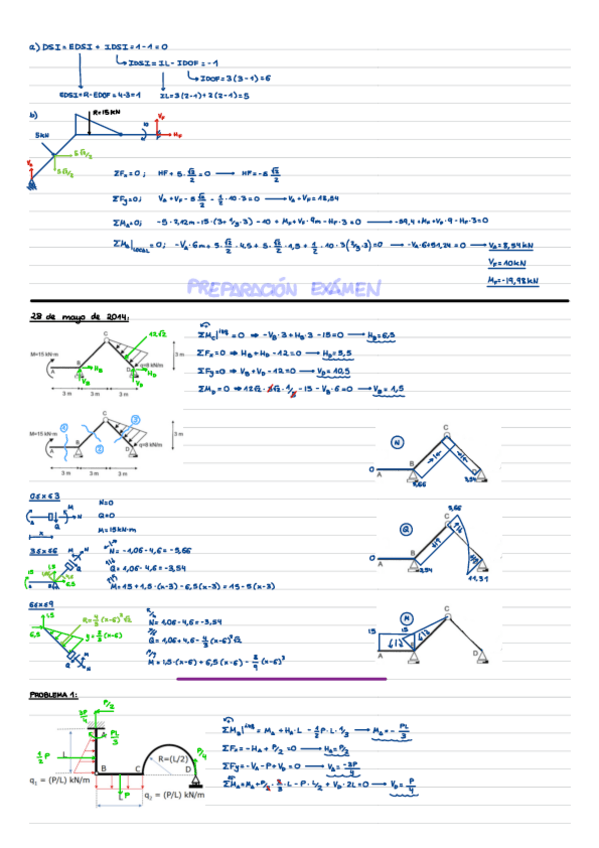 a) DSI = EDSI + IDSI = 1 - 1 = 0
IDSI = IL - IDOF = -1
IDOF = 3 (3-1) = 6
EDSI = R - EDOF = 4 - 3 = 1
IL = 3 (2-1) + 2 (2-1) = 5
b)
R = 15 kN
5 kN
10
V_F
H_F
5√2/2
5√2/2
V_A
ΣFx = 0 ; HF + 5·√2/2 = 0 → HF = -5 √2/2
ΣFy = 0; V_A + V_F - 5 √2/2 - 1/2 · 10 · 3 = 0 → V_A + V_F = 18,54
ΣM_A = 0; -5 · 2,12m - 15 · (3 + 1/3 · 3) - 10 + M_F + V_F · 9m - H_F · 3 = 0 → -89,4 + M_F + V_F · 9 - H_F · 3 = 0
= 0; -V_A · 6m + 5 · √2/2 · 4,5 + 5 · √2/2 · 1,5 + 1/2 · 10 · 3 (2/3 · 3) = 0 → -V_A · 6 + 51,24 = 0 → V_A = 8,54 kN
V_F = 10 kN
M_F = -19,98 kN
PREPARACIÓN EXÁMEN
28 de mayo de 2014:
12√2
M=15 kN·m
q=8 kN/m
A
B
C
D
H_B
V_B
H_D
V_D
3 m
3 m
3 m
3 m
ΣM_C|izq = 0 ⇒ -V_B · 3 + H_B · 3 - 15 = 0 → H_B = 6,5
ΣFx = 0 ⇒ H_B + H_D - 12 = 0 → H_D = 5,5
ΣFy = 0 ⇒ V_B + V_D - 12 = 0 → V_D = 10,5
ΣM_D = 0 ⇒ 12√2 · 3√2 · 1/3 - 15 - V_B · 6 = 0 → V_B = 1,5
M=15 kN·m
q=8 kN/m
A
B
C
D
1
2
3
3 m
3 m
3 m
3 m
N
0
A
B
C
D
5,66
3,54
0≤x≤3
N = 0
Q = 0
M = 15 kN·m
x
3≤x≤6
N = -1,06 - 4,6 = -5,66
Q = 1,06 - 4,6 = -3,54
M = 15 + 1,5 · (x-3) - 6,5 (x-3) = 15 - 5 (x-3)
15
1,5
6,5
Q
0
A
B
C
D
3,54
5,66
11,31
6≤x≤9
1,5
6,5
R = 4/3 (x-6)² √2
q = 8/3 (x-6)
N = 1,06 - 4,6 = -3,54
Q = 1,06 + 4,6 - 4/3 (x-6)² √2
M = 1,5 · (x-6) + 6,5 (x-6) - 8/9 (x-6)³
M
15
15
A
B
C
D
PROBLEMA 1:
P/2
PL/3
1/2 P
L
A
B
C
D
R=(L/2)
P/4
P
q₁ = (P/L) kN/m
q₂ = (P/L) kN/m
ΣM_B|izq = M_A + H_A · L - 1/2 P · L · 1/3 → M_A = - PL/3
ΣFx = -H_A + P/2 = 0 → H_A = P/2
ΣFy = -V_A - P + V_D = 0 → V_A = -3P/4
ΣM_A = M_A + P/2 · 2/3 · L - P · L/2 + V_D · 2L = 0 → V_D = P/4